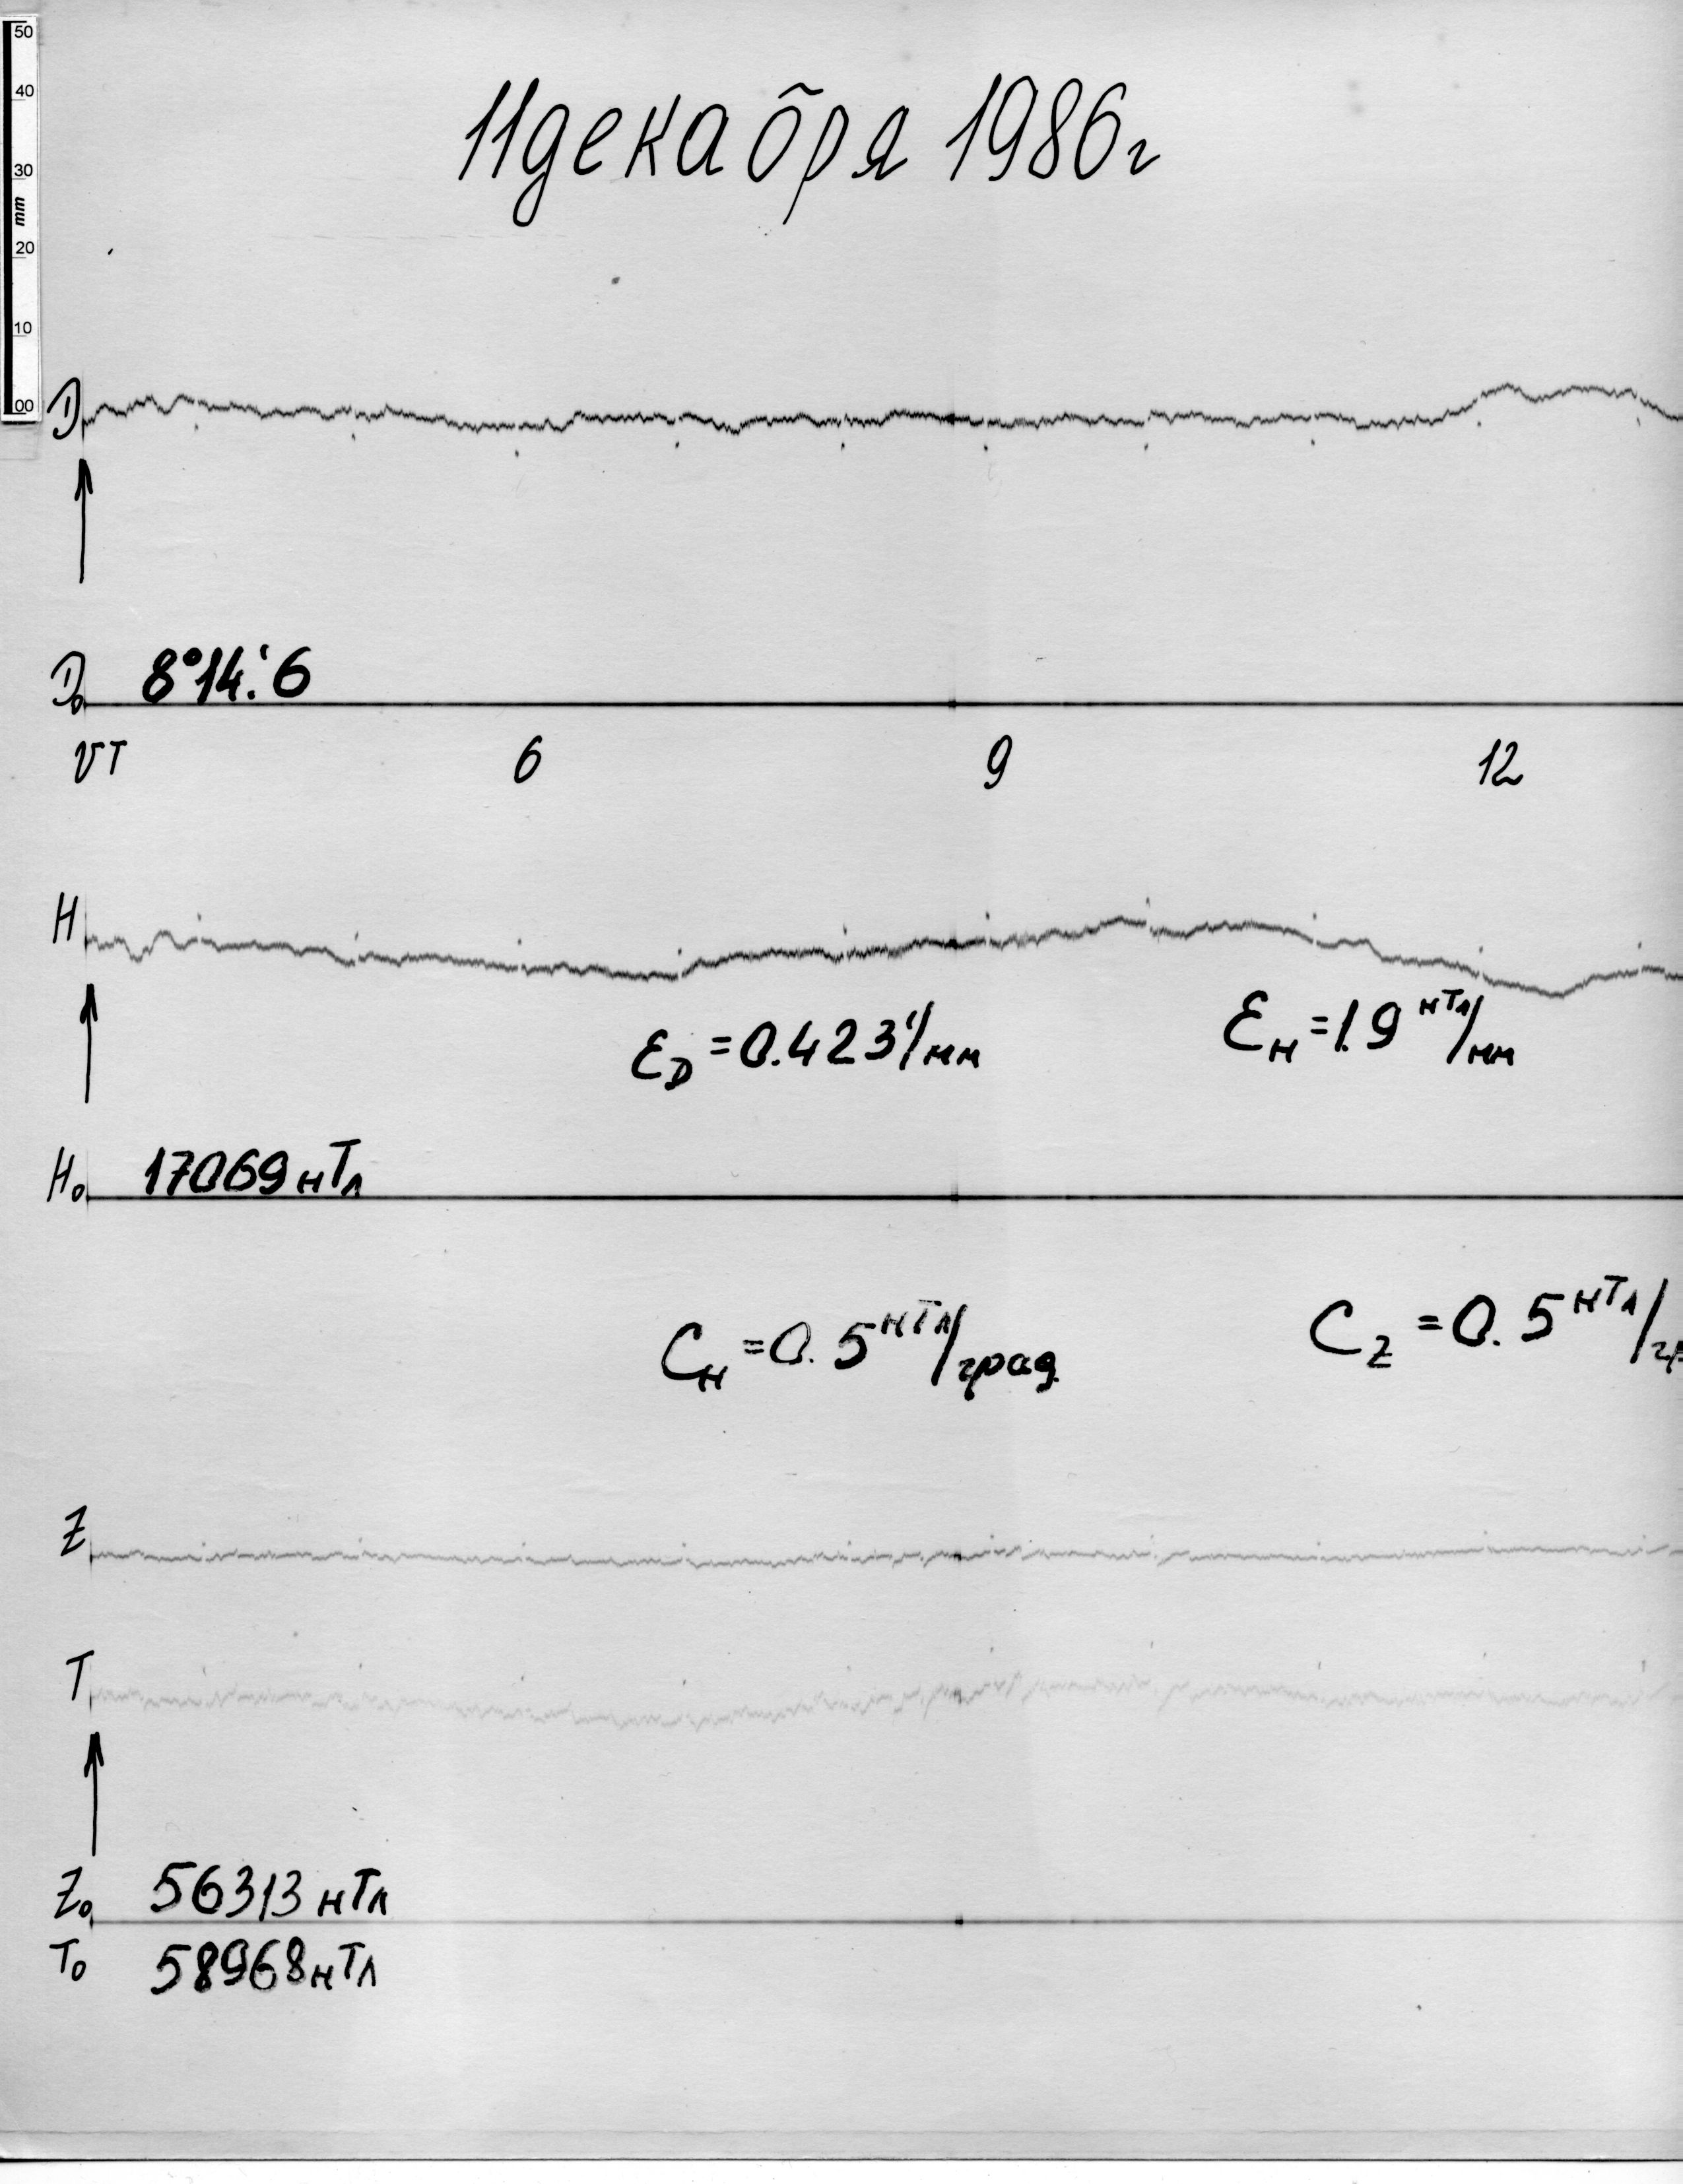 50
40
30
mm
20
10
00
11 декабря 1986г
D
D₀ 8°14.'6
UT 6 9 12
H
ε_D = 0.423'/мм ε_H = 1.9 нТл/мм
H₀ 17069 нТл
C_H = 0.5 нТл/град. C_Z = 0.5 нТл/гр
Z
T
Z₀ 56313 нТл
T₀ 58968 нТл